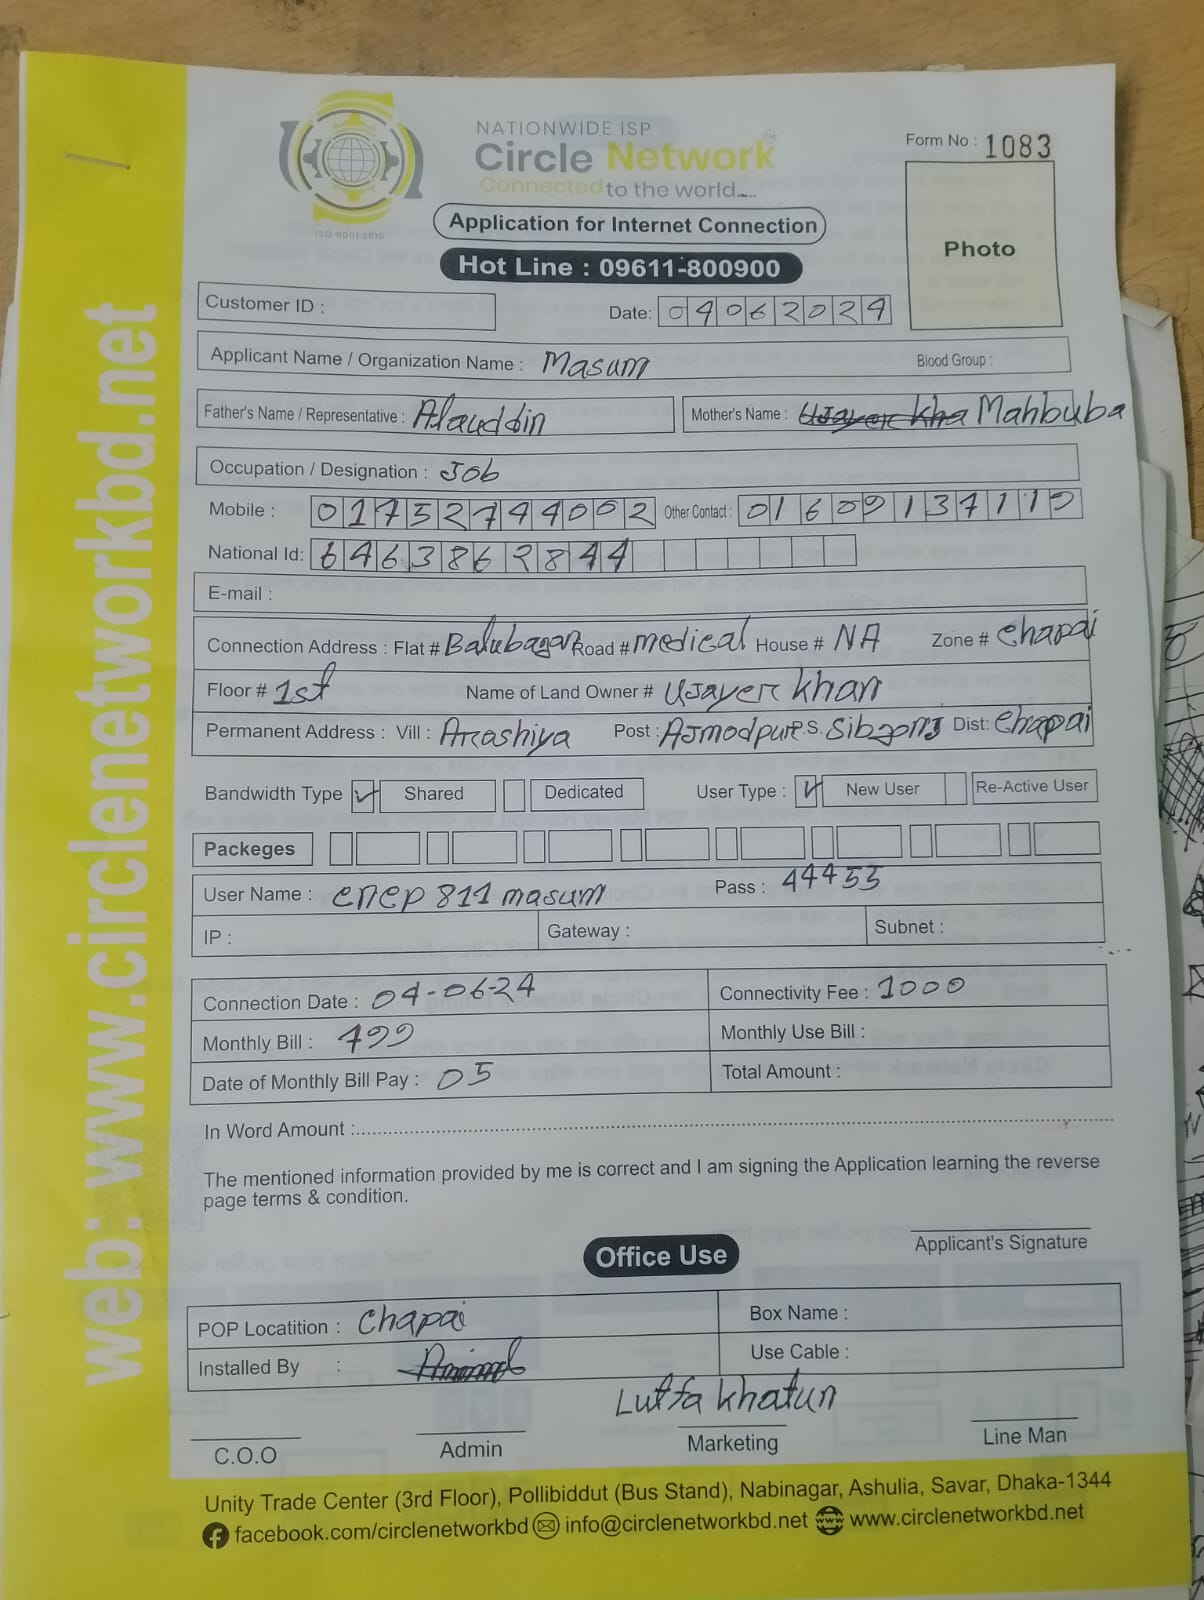 NATIONWIDE ISP
Circle Network
Connected to the world....
ISO 9001:2015
Form No : 1083
Application for Internet Connection
Photo
Hot Line : 09611-800900
Customer ID :
Date: 04062024
Applicant Name / Organization Name : Masum Blood Group :
Father's Name / Representative : Alauddin Mother's Name : Mahbuba
Occupation / Designation : Job
Mobile : 01752744002 Other Contact : 01609137119
National Id: 6463862844
E-mail :
Connection Address : Flat # Balubagan Road # medical House # NA Zone # Chapai
Floor # 1st Name of Land Owner # Ujayer Khan
Permanent Address : Vill : Arrashiya Post : Ajmodpur P.S. Sibgonj Dist: Chapai
Bandwidth Type Shared Dedicated User Type : New User Re-Active User
Packeges
User Name : cncp 811 masum Pass : 44455
IP : Gateway : Subnet :
Connection Date : 04-06-24 Connectivity Fee : 1000
Monthly Bill : 499 Monthly Use Bill :
Date of Monthly Bill Pay : 05 Total Amount :
In Word Amount :
The mentioned information provided by me is correct and I am signing the Application learning the reverse
page terms & condition.
Applicant's Signature
Office Use
POP Locatition : Chapai Box Name :
Installed By : Use Cable :
Lutfa Khatun
C.O.O Admin Marketing Line Man
Unity Trade Center (3rd Floor), Pollibiddut (Bus Stand), Nabinagar, Ashulia, Savar, Dhaka-1344
facebook.com/circlenetworkbd info@circlenetworkbd.net www.circlenetworkbd.net
web: www.circlenetworkbd.net